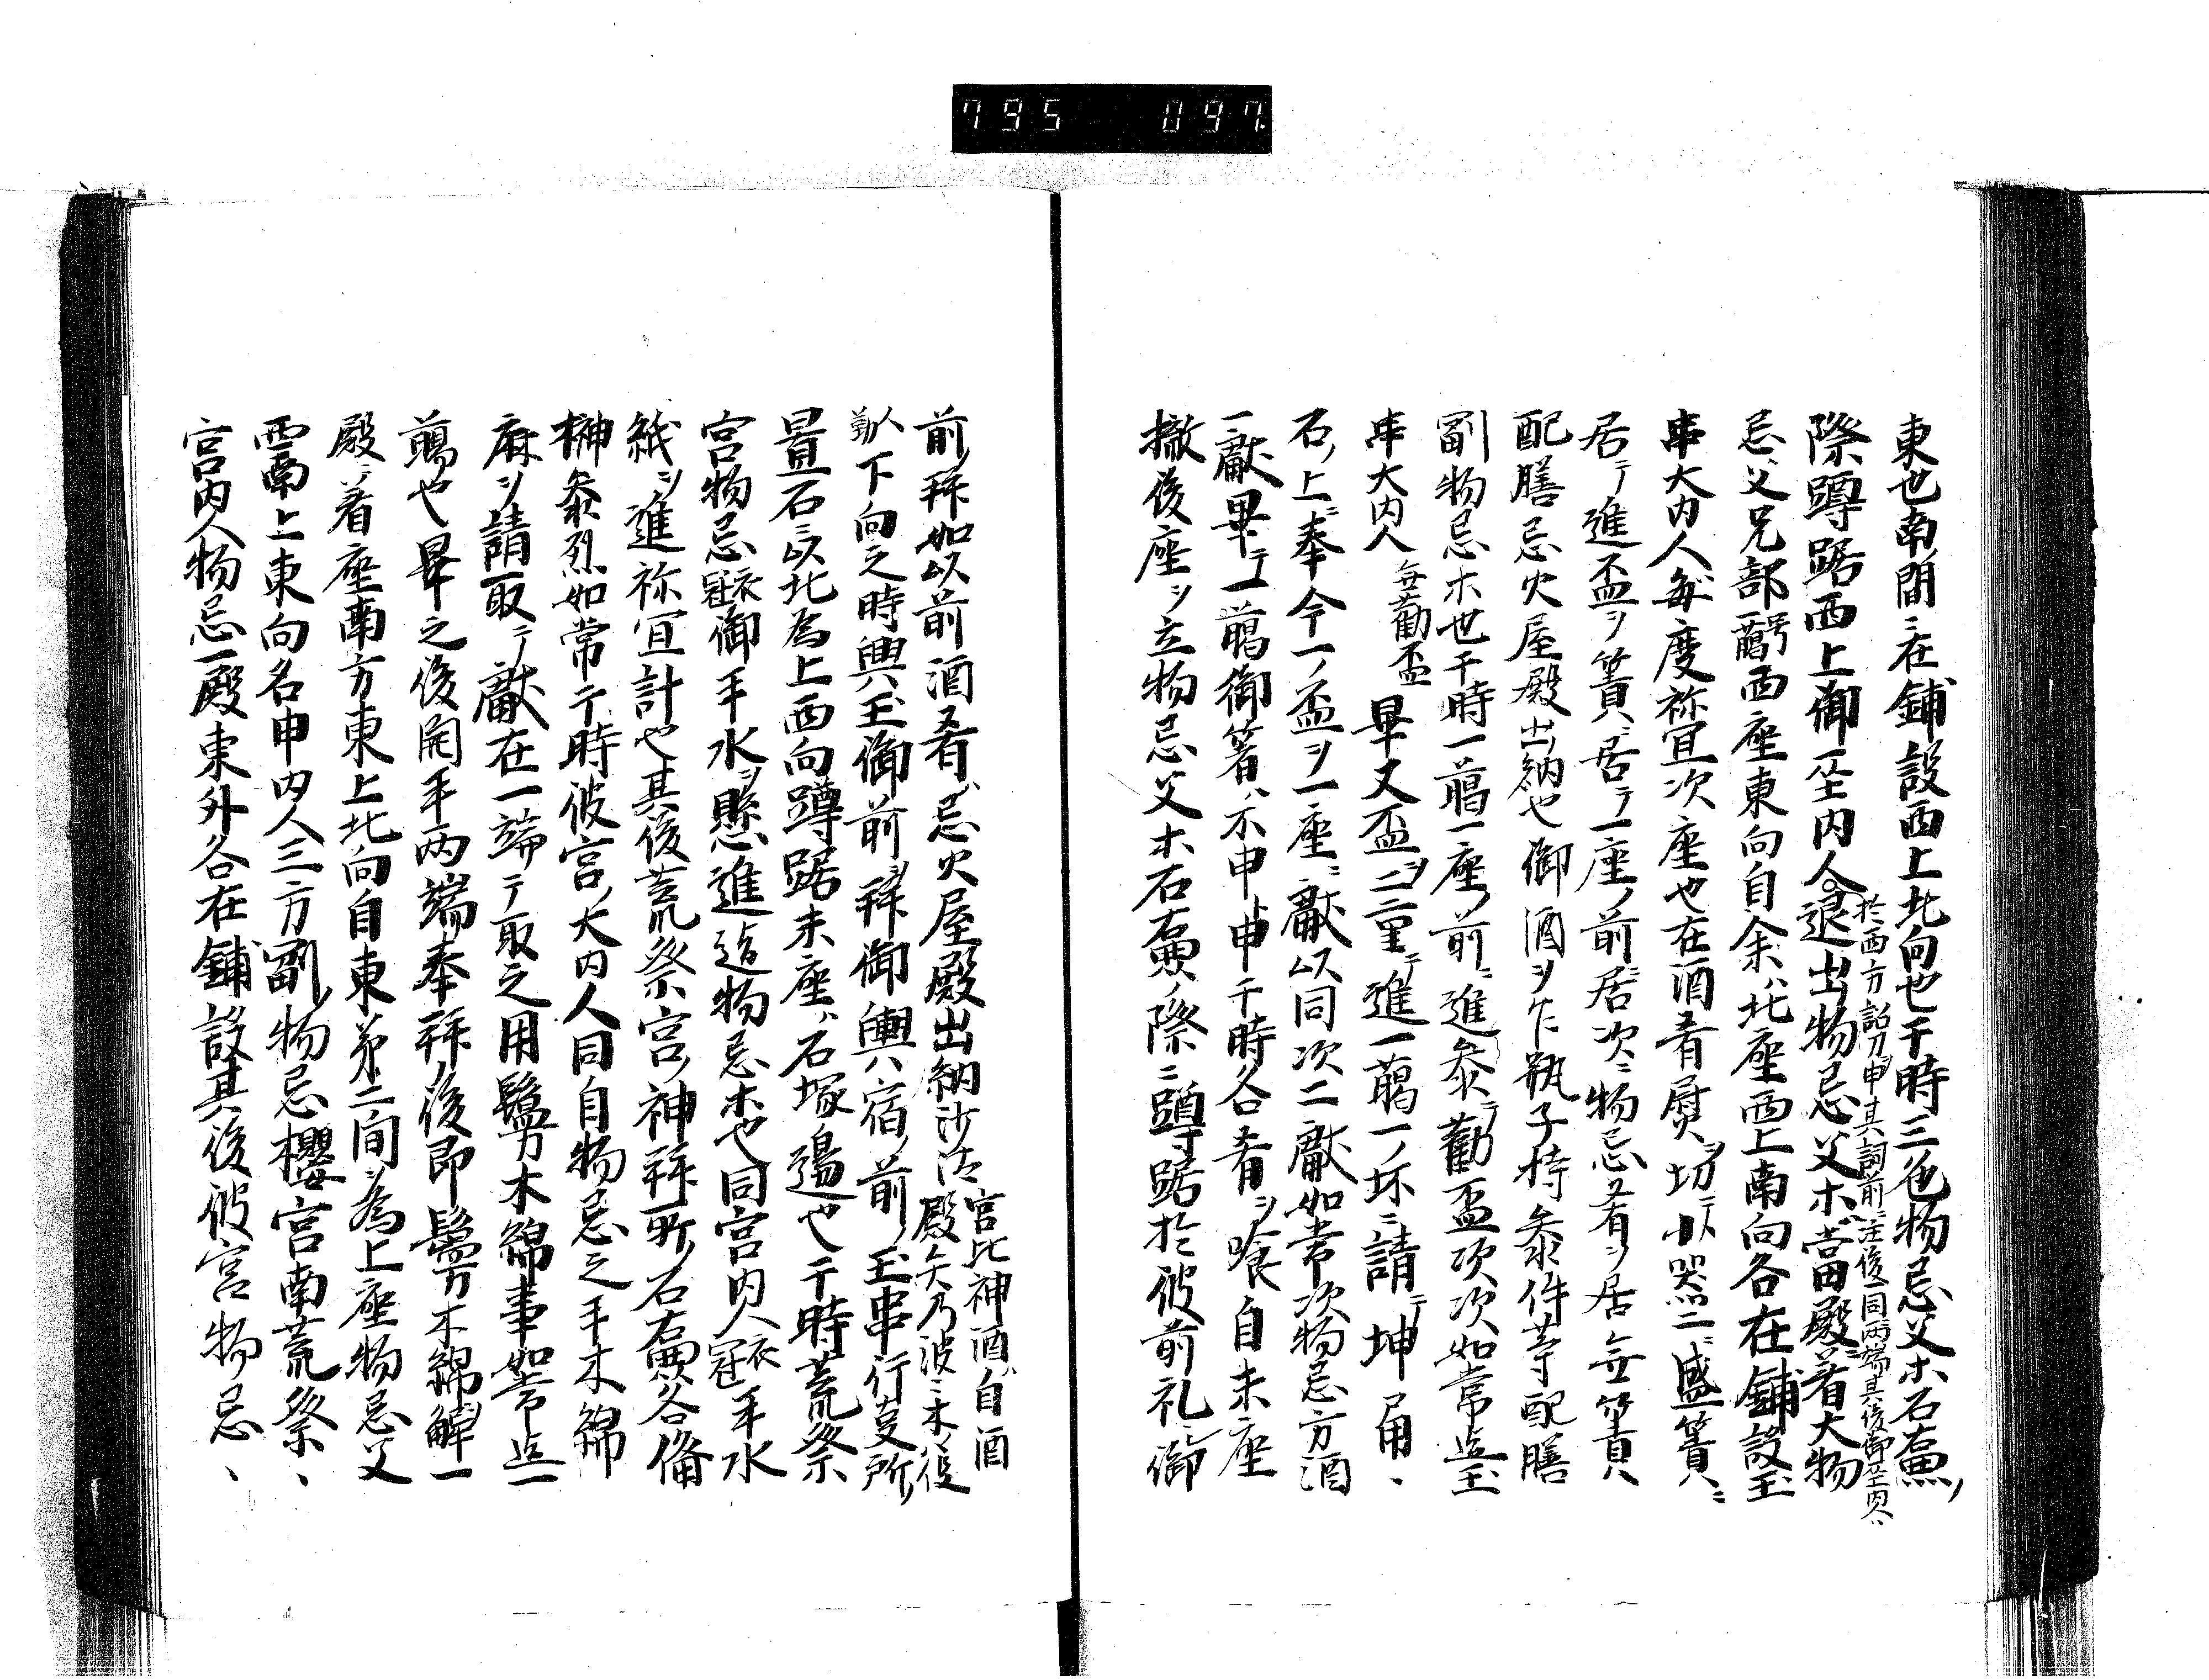 795 097
東也南間ニ在鋪設西上北向也干時三色物忌父ホ石疊ノ
際蹲踞西上御笠内人退出物忌父ホハ當殿ニ著大物
於西方詔刀申其詞前ニ注後同両端其後御笠内人ハ
忌父兄部一﨟西座東向自余ハ北座西上南向各在鋪設玉
串大内人毎度祢宜次座也在酒肴熨ヲ切ニテ小器ニ盛簀ニ
居テ進盃ヲ簀ニ居テ一座ノ前ニ居次ニ物忌肴ヲ居無簀
配膳忌火屋殿出納也御酒ヲ乍瓶子持参件等配膳
副物忌ホ也干時一﨟一座ノ前ニ進参テ勸盃次次如常迄玉
串大内人無勸盃畢又盃ヲ二重テ進一﨟一ノ坏ニ請テ坤角ノ
石ノ上ニ奉今一ノ盃ヲ一座ニ獻以同次二獻如常次物忌方酒
一獻畢テ一﨟御箸ハ不申申干時各肴ヲ喰自末座
撤後座ヲ立物忌父ホ石疊ノ際ニ蹲踞於彼前礼御
前ノ拜如以前酒肴ハ忌火屋殿出納沙汰宮比神酒ハ自酒
殿矢乃波波木ハ役
人勤下向之時興玉御前ヲ拜御輿宿ノ前ノ玉串行事所ノ
置石ニ以北為上西向蹲踞末座ハ石塚邊也干時荒祭
宮物忌衣冠御手水ヲ懸進迄物忌ホ也同宮内人衣冠手水
紙ヲ進祢宜計也其後荒祭宮ノ神拜所ノ石疊各備
榊参烈如常干時彼宮ノ大内人同自物忌之手木綿
麻ヲ請取テ獻在一端テ取之用鬘木綿事如常迄一
﨟也畢之後開手両端奉拜後即鬘木綿解一
殿ニ着座南方東上北向自東第二間ヲ為上座物忌父
西南上東向名申内人三方副物忌櫻宮南荒祭ヽ
宮内人物忌一殿東外各在鋪設其後彼宮物忌ヽ